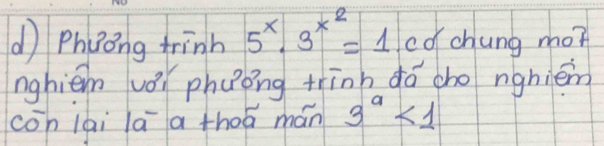 d) Phương trình 5^x. 3^{x^2} = 1 có chung một
nghiệm với phương trình đã cho nghiệm
còn lại là a thoã mãn 3^a < 1